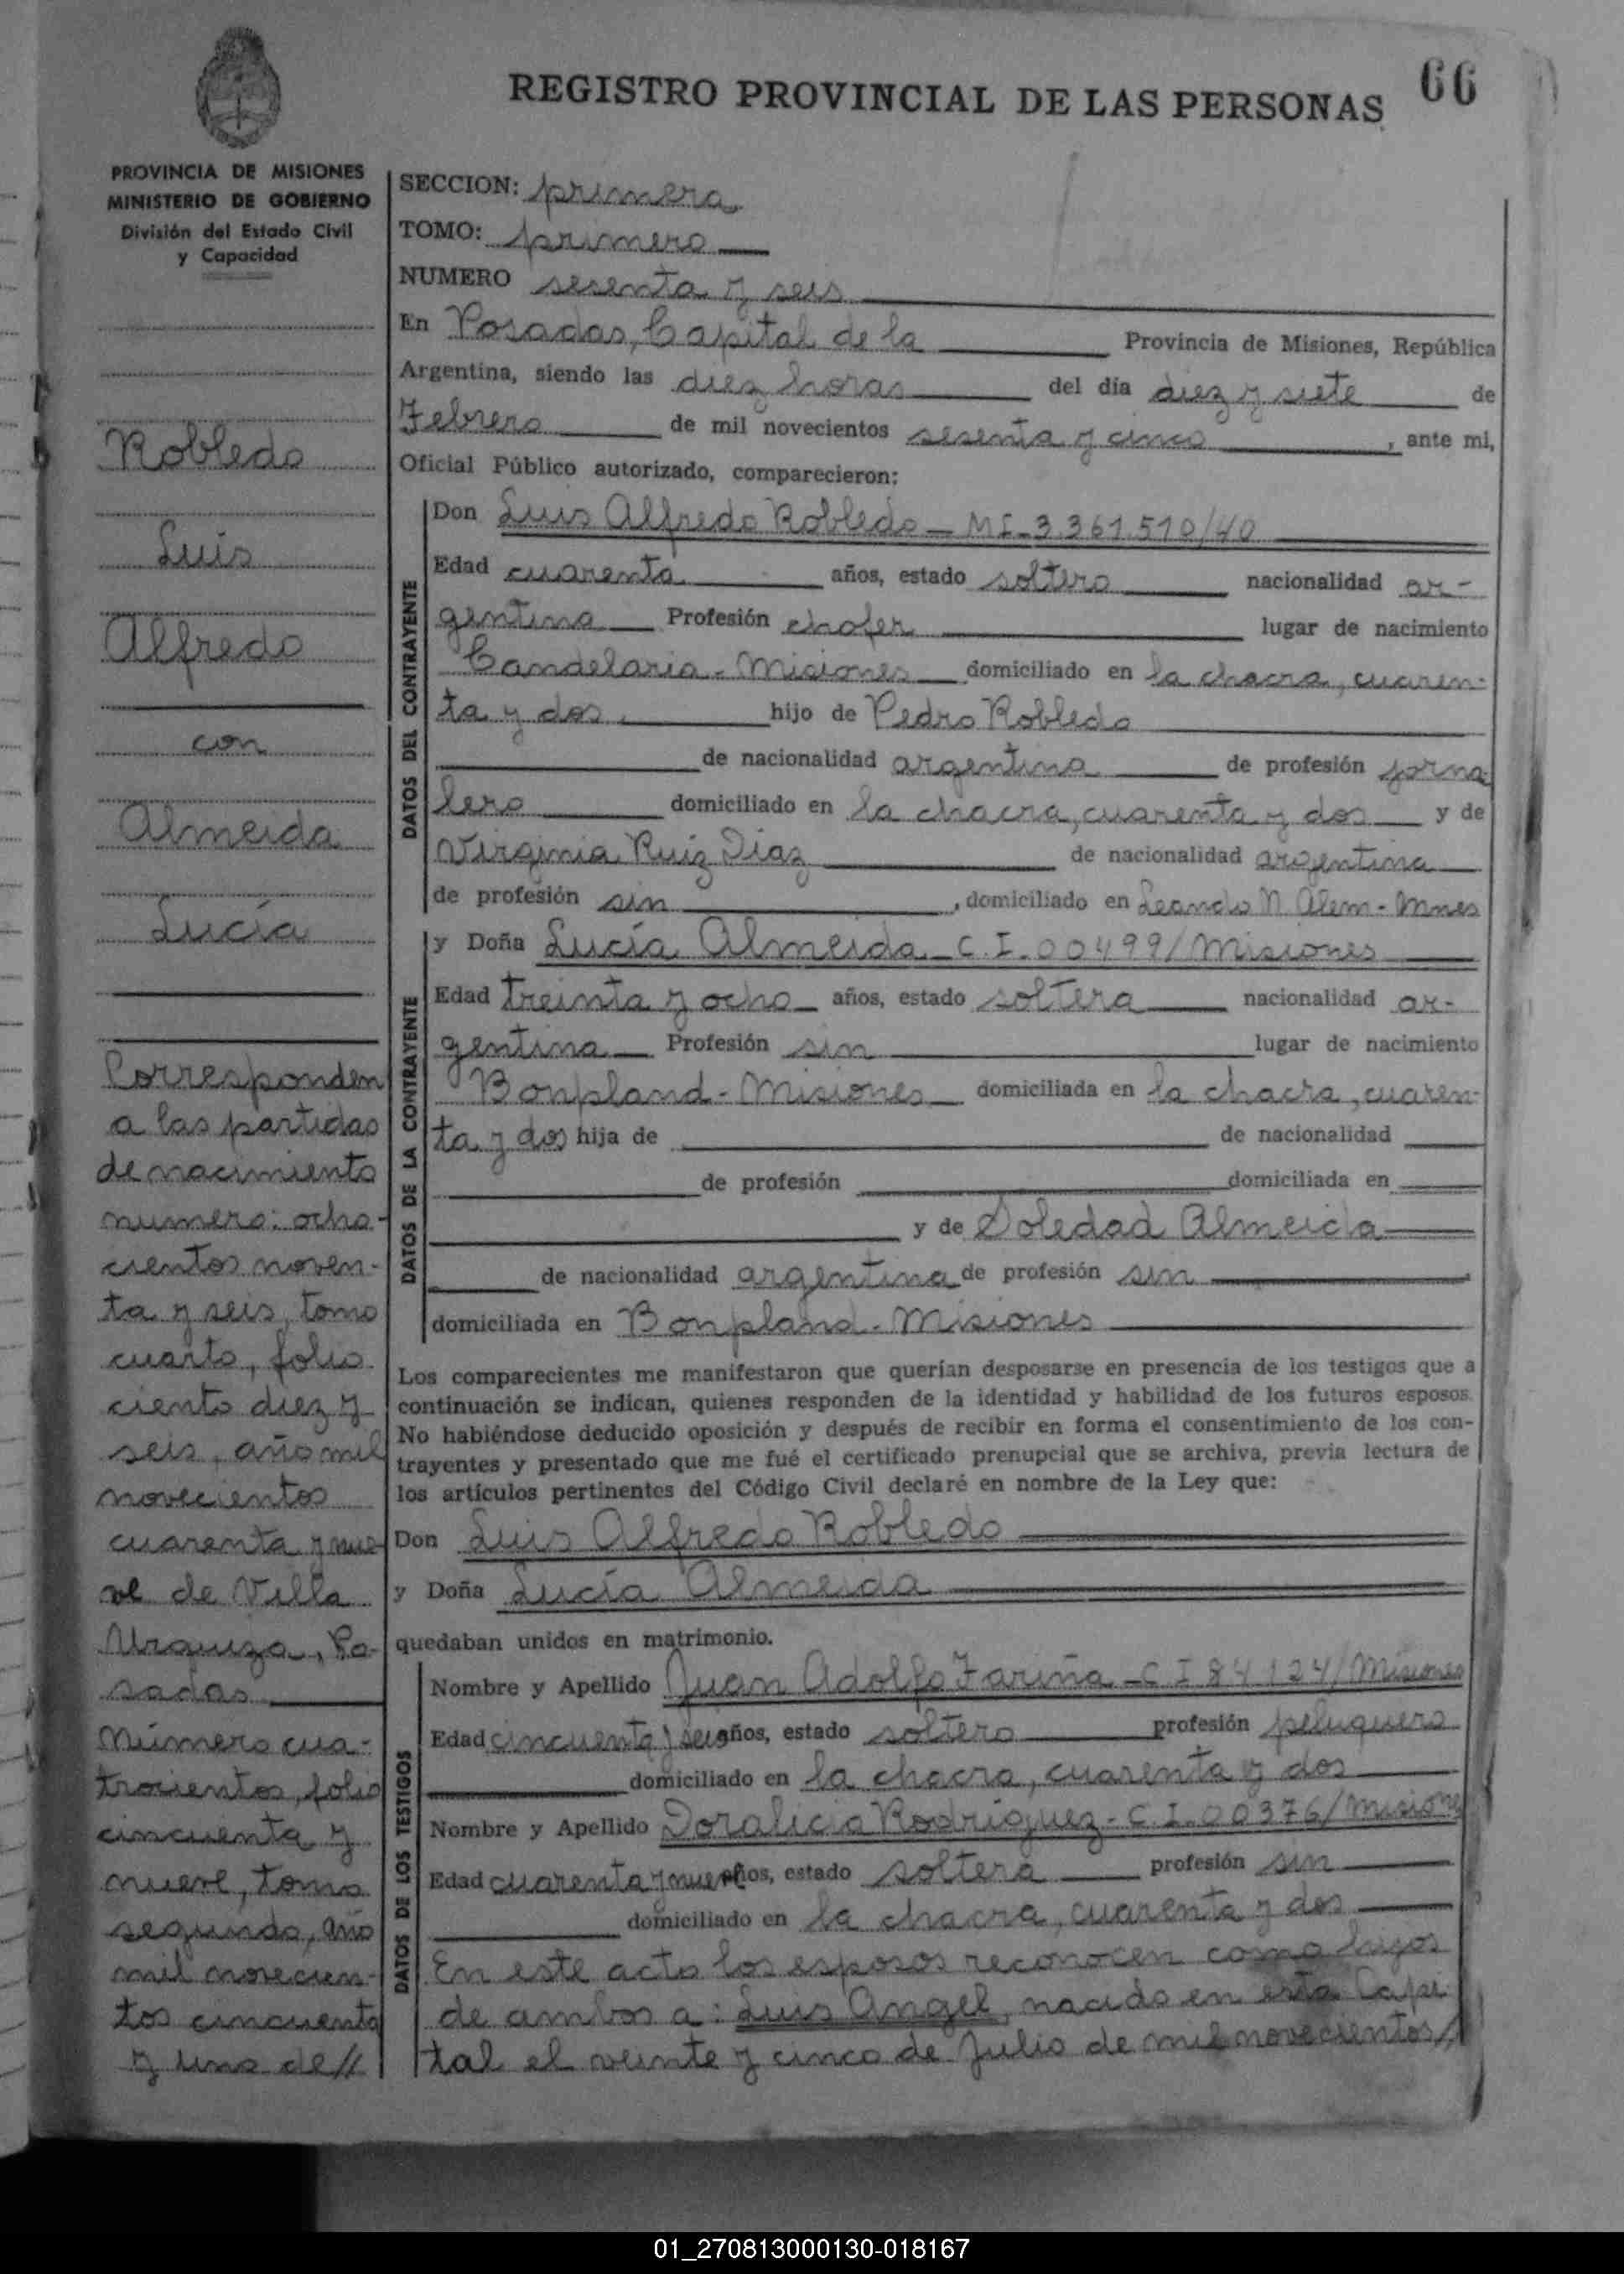 REGISTRO PROVINCIAL DE LAS PERSONAS 66
PROVINCIA DE MISIONES
MINISTERIO DE GOBIERNO
División del Estado Civil
y Capacidad
Robledo
Luis
Alfredo
con
Almeida
Lucía
Corresponden
a las partidas
de nacimiento
numero: ocho-
cientos noven-
ta y seis, tomo
cuarto, folio
ciento diez y
seis, año mil
novecientos
cuarenta y nue
ve de Villa
Urquiza, Po-
sadas
Número cua-
trocientos, folio
cincuenta y
nueve, tomo
segundo, año
mil novecien-
tos cincuenta
y uno de//
SECCION: primera
TOMO: primero
NUMERO sesenta y seis
En Posadas, Capital de la Provincia de Misiones, República
Argentina, siendo las diez horas del día diez y siete de
Febrero de mil novecientos sesenta y cinco, ante mi,
Oficial Público autorizado, comparecieron:
DATOS DEL CONTRAYENTE
Don Luis Alfredo Robledo - MI-3.361.510/40
Edad cuarenta años, estado soltero nacionalidad ar-
gentina Profesión chofer lugar de nacimiento
Candelaria - Misiones domiciliado en la chacra, cuaren-
ta y dos hijo de Pedro Robledo
de nacionalidad argentina de profesión jorna
lero domiciliado en la chacra, cuarenta y dos y de
Virginia Ruiz Diaz de nacionalidad argentina
de profesión sin, domiciliado en Leandro N. Alem - Mnes
DATOS DE LA CONTRAYENTE
y Doña Lucía Almeida - C.I. 00499/Misiones
Edad treinta y ocho años, estado soltera nacionalidad ar-
gentina Profesión sin lugar de nacimiento
Bonpland - Misiones domiciliada en la chacra, cuaren-
ta y dos hija de de nacionalidad
de profesión domiciliada en
y de Soledad Almeida
de nacionalidad argentina de profesión sin
domiciliada en Bonpland - Misiones
Los comparecientes me manifestaron que querían desposarse en presencia de los testigos que a
continuación se indican, quienes responden de la identidad y habilidad de los futuros esposos.
No habiéndose deducido oposición y después de recibir en forma el consentimiento de los con-
trayentes y presentado que me fué el certificado prenupcial que se archiva, previa lectura de
los artículos pertinentes del Código Civil declaré en nombre de la Ley que:
Don Luis Alfredo Robledo
y Doña Lucía Almeida
quedaban unidos en matrimonio.
DATOS DE LOS TESTIGOS
Nombre y Apellido Juan Adolfo Fariña - C I 84.124/Misiones
Edad cincuenta y seis años, estado soltero profesión peluquero
domiciliado en la chacra, cuarenta y dos
Nombre y Apellido Doralicia Rodríguez - C.I. 00376/Misiones
Edad cuarenta y nueve años, estado soltera profesión sin
domiciliado en la chacra, cuarenta y dos
En este acto los esposos reconocen como hijos
de ambos a: Luis Angel, nacido en esta Capi
tal el veinte y cinco de Julio de mil novecientos//
01_270813000130-018167